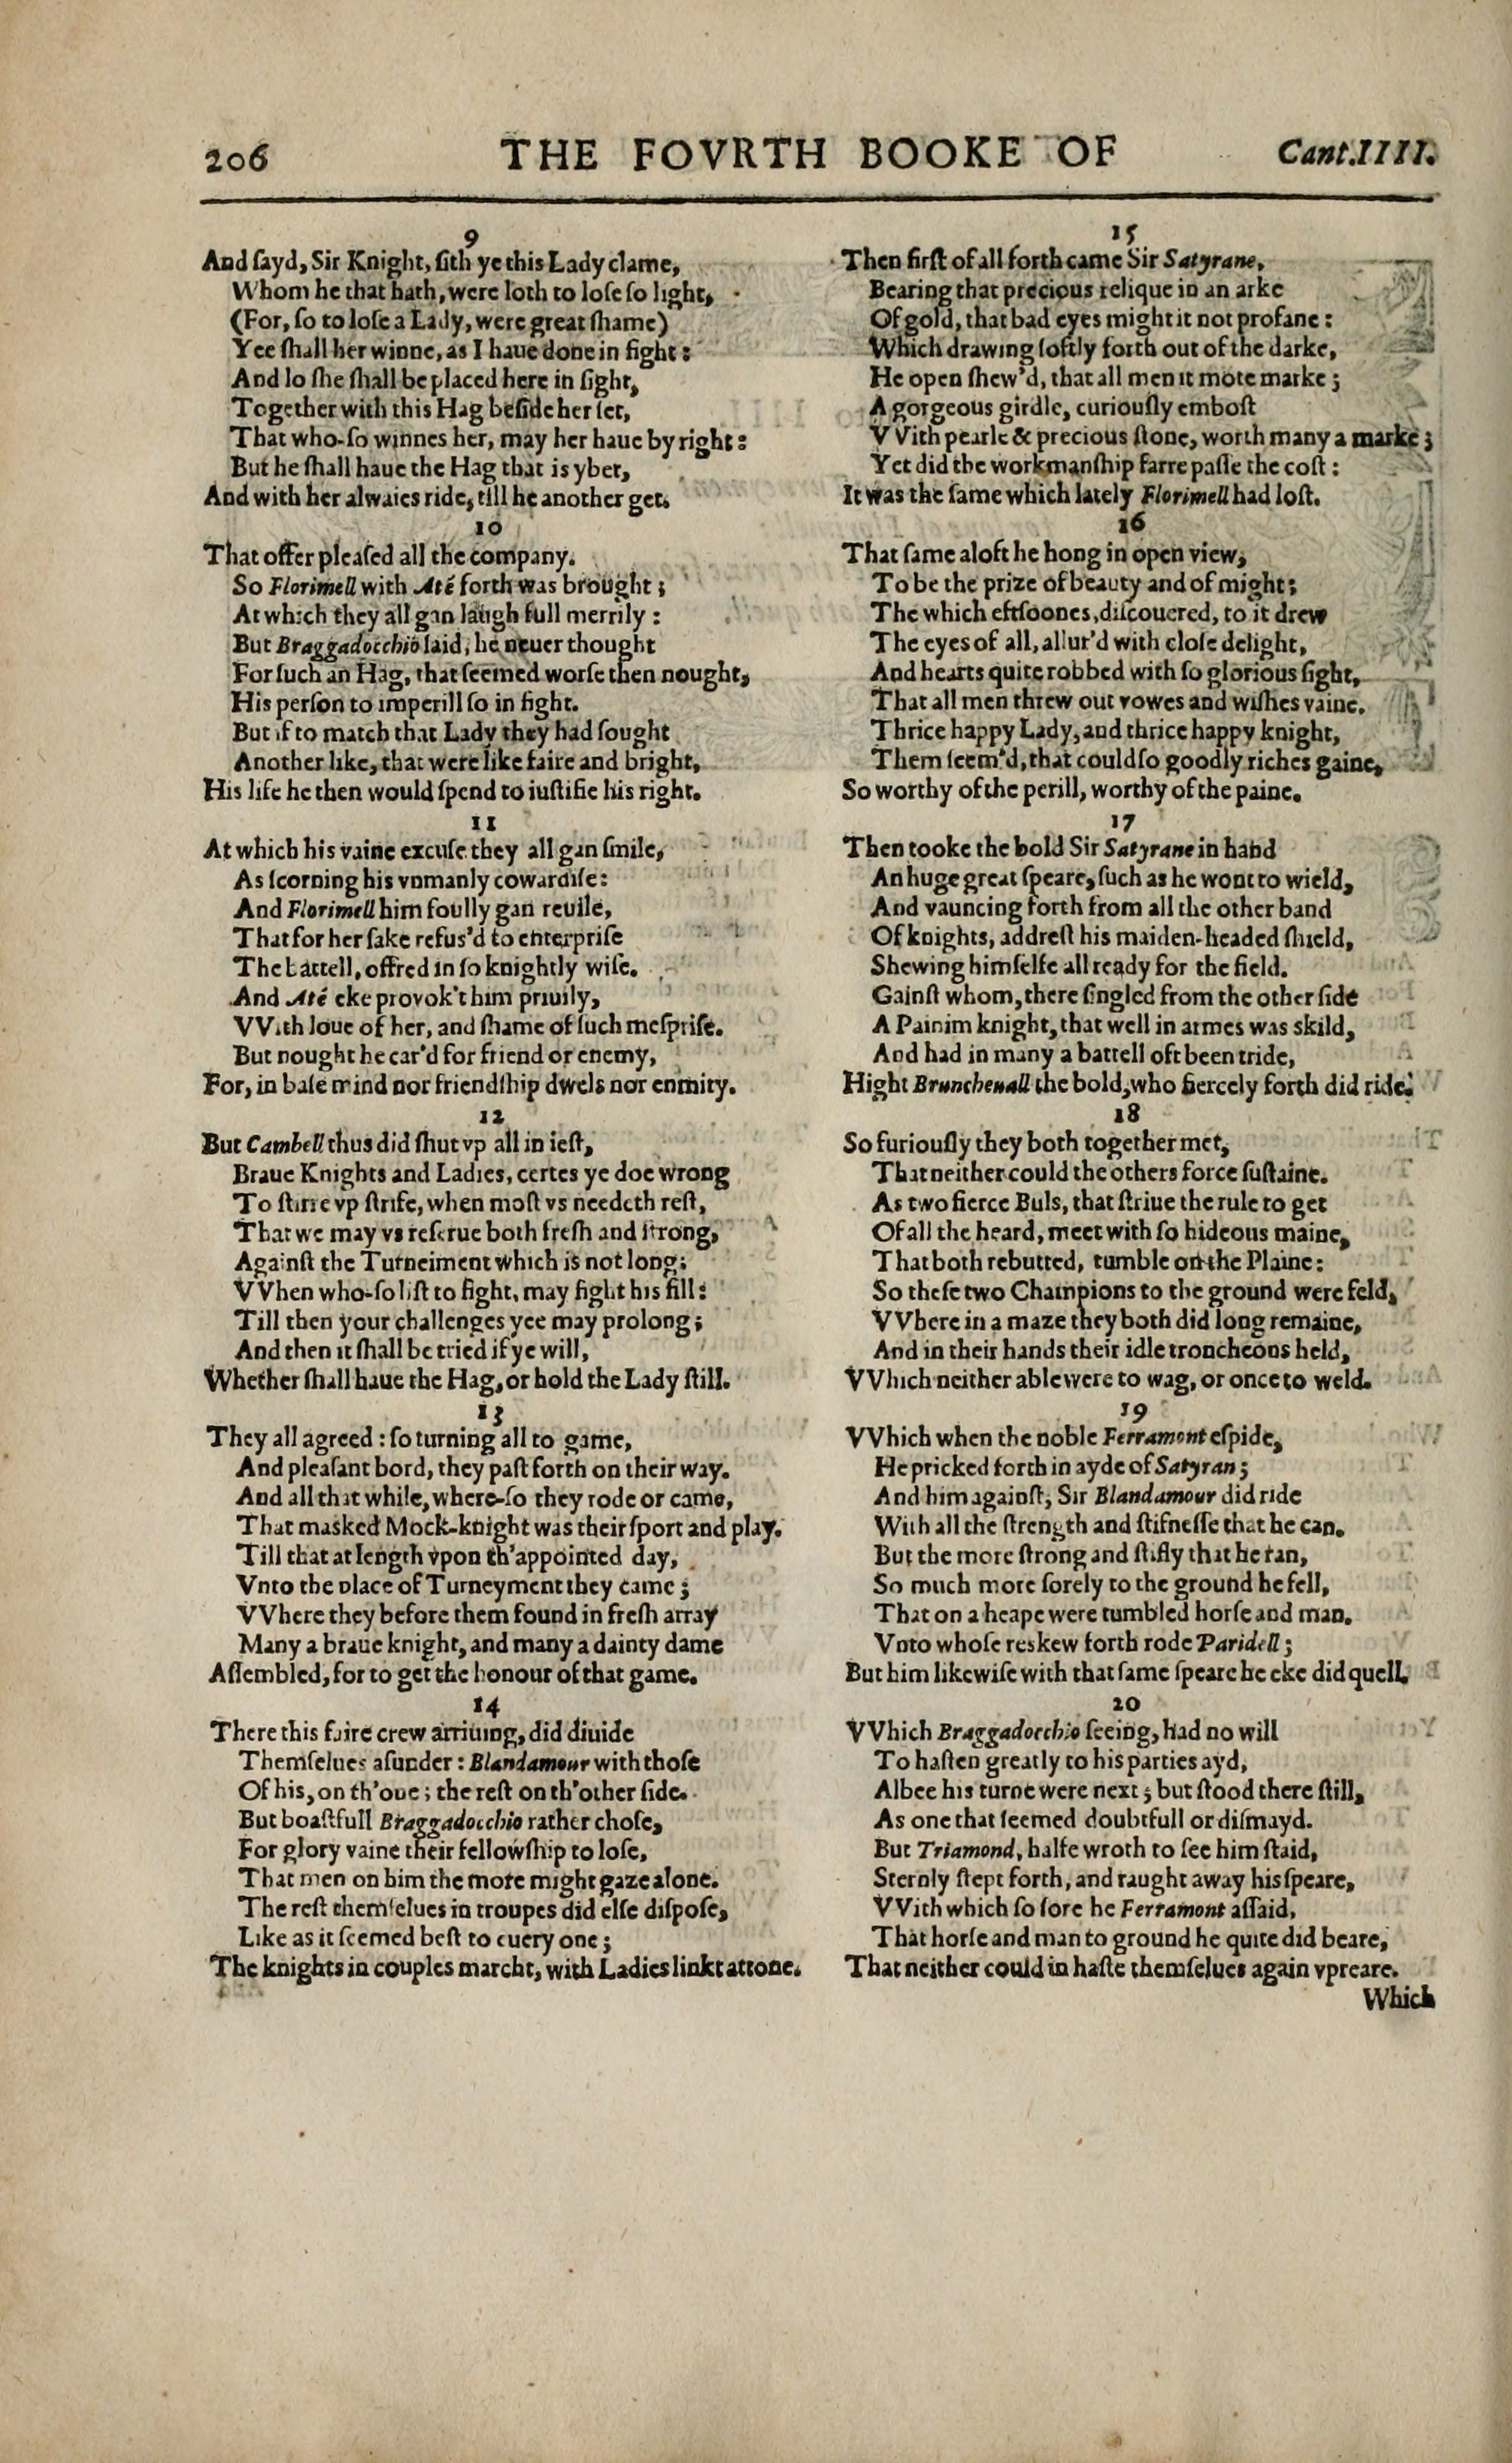 206 THE FOVRTH BOOKE OF Cant.IIII.
9
And ſayd, Sir Knight, ſith ye this Lady clame,
Whom he that hath, were loth to loſe ſo light,
(For, ſo to loſe a Lady, were great ſhame)
Yee ſhall her winne, as I haue done in fight:
And lo ſhe ſhall be placed here in ſight,
Together with this Hag beſide her ſet,
That who-ſo winnes her, may her haue by right:
But he ſhall haue the Hag that is yber,
And with her alwaies ride, till he another get.
10
That offer pleaſed all the company.
So Florimell with Até forth was brought;
At which they all gan laugh full merrily:
But Braggadocchio ſaid, he neuer thought
For ſuch an Hag, that ſeemed worſe then nought,
His perſon to imperill ſo in fight.
But if to match that Lady they had ſought
Another like, that were like faire and bright,
His life he then would ſpend to iuſtifie his right.
11
At which his vaine excuſe they all gan ſmile,
As ſcorning his vnmanly cowardiſe:
And Florimell him foully gan reuile,
That for her ſake refus'd to enterpriſe
The battell, offred in ſo knightly wiſe.
And Até eke provok't him priuily,
VVith loue of her, and ſhame of ſuch meſpriſe.
But nought he car'd for friend or enemy,
For, in baſe mind nor friendſhip dwels nor enmity.
12
But Cambell thus did ſhut vp all in ieſt,
Braue Knights and Ladies, certes ye doe wrong
To ſtirre vp ſtrife, when moſt vs needeth reſt,
That we may vs reſerue both freſh and ſtrong,
Againſt the Turneiment which is not long;
VVhen who-ſo liſt to fight, may fight his fill:
Till then your challenges yee may prolong;
And then it ſhall be tried if ye will,
Whether ſhall haue the Hag, or hold the Lady ſtill.
13
They all agreed: ſo turning all to game,
And pleaſant bord, they paſt forth on their way.
And all that while, where-ſo they rode or came,
That masked Mock-knight was their ſport and play.
Till that at length vpon th'appointed day,
Vnto the place of Turneyment they came;
VVhere they before them found in freſh array
Many a braue knight, and many a dainty dame
Aſſembled, for to get the honour of that game.
14
There this faire crew arriuing, did diuide
Themſelues aſunder: Blandamour with thoſe
Of his, on th'one; the reſt on th'other ſide.
But boaſtfull Braggadocchio rather choſe,
For glory vaine their fellowſhip to loſe,
That men on him the more might gaze alone.
The reſt themſelues in troupes did elſe diſpoſe,
Like as it ſeemed beſt to euery one;
The knights in couples marcht, with Ladies linkt attone.
15
Then firſt of all forth came Sir Satyrane,
Bearing that precious relique in an arke
Of gold, that bad eyes might it not profane:
Which drawing ſoftly forth out of the darke,
He open ſhew'd, that all men it mote marke;
A gorgeous girdle, curiouſly emboſt
VVith pearle & precious ſtone, worth many a marke;
Yet did the workmanſhip farre paſſe the coſt:
It was the ſame which lately Florimell had loſt.
16
That ſame aloft he hong in open view,
To be the prize of beauty and of might;
The which eftſoones, diſcouered, to it drew
The eyes of all, allur'd with cloſe delight,
And hearts quite robbed with ſo glorious ſight,
That all men threw out vowes and wiſhes vaine.
Thrice happy Lady, and thrice happy knight,
Them ſeem'd, that could ſo goodly riches gaine,
So worthy of the perill, worthy of the paine.
17
Then tooke the bold Sir Satyrane in hand
An huge great ſpeare, ſuch as he wont to wield,
And vauncing forth from all the other band
Of knights, addreſt his maiden-headed ſhield,
Shewing himſelfe all ready for the field.
Gainſt whom, there ſingled from the other ſide
A Painim knight, that well in armes was skild,
And had in many a battell oft been tride,
Hight Bruncheuall the bold, who fiercely forth did ride.
18
So furiouſly they both together met,
That neither could the others force ſuſtaine.
As two fierce Buls, that ſtriue the rule to get
Of all the heard, meet with ſo hideous maine,
That both rebutted, tumble on the Plaine:
So theſe two Champions to the ground were feld,
VVhere in a maze they both did long remaine,
And in their hands their idle troncheons held,
VVhich neither able were to wag, or once to weld.
19
VVhich when the noble Ferramont eſpide,
He pricked forth in ayde of Satyran;
And him againſt, Sir Blandamour did ride
With all the ſtrength and ſtifneſſe that he can.
But the more ſtrong and ſtifly that he ran,
So much more ſorely to the ground he fell,
That on a heape were tumbled horſe and man.
Vnto whoſe reskew forth rode Paridell;
But him likewiſe with that ſame ſpeare he eke did quell.
20
VVhich Braggadocchio ſeeing, had no will
To haſten greatly to his parties ayd,
Albee his turne were next; but ſtood there ſtill,
As one that ſeemed doubtfull or diſmayd.
But Triamond, halfe wroth to ſee him ſtaid,
Sternly ſtept forth, and raught away his ſpeare,
VVith which ſo ſore he Ferramont aſſaid,
That horſe and man to ground he quite did beare,
That neither could in haſte themſelues again vpreare.
Which